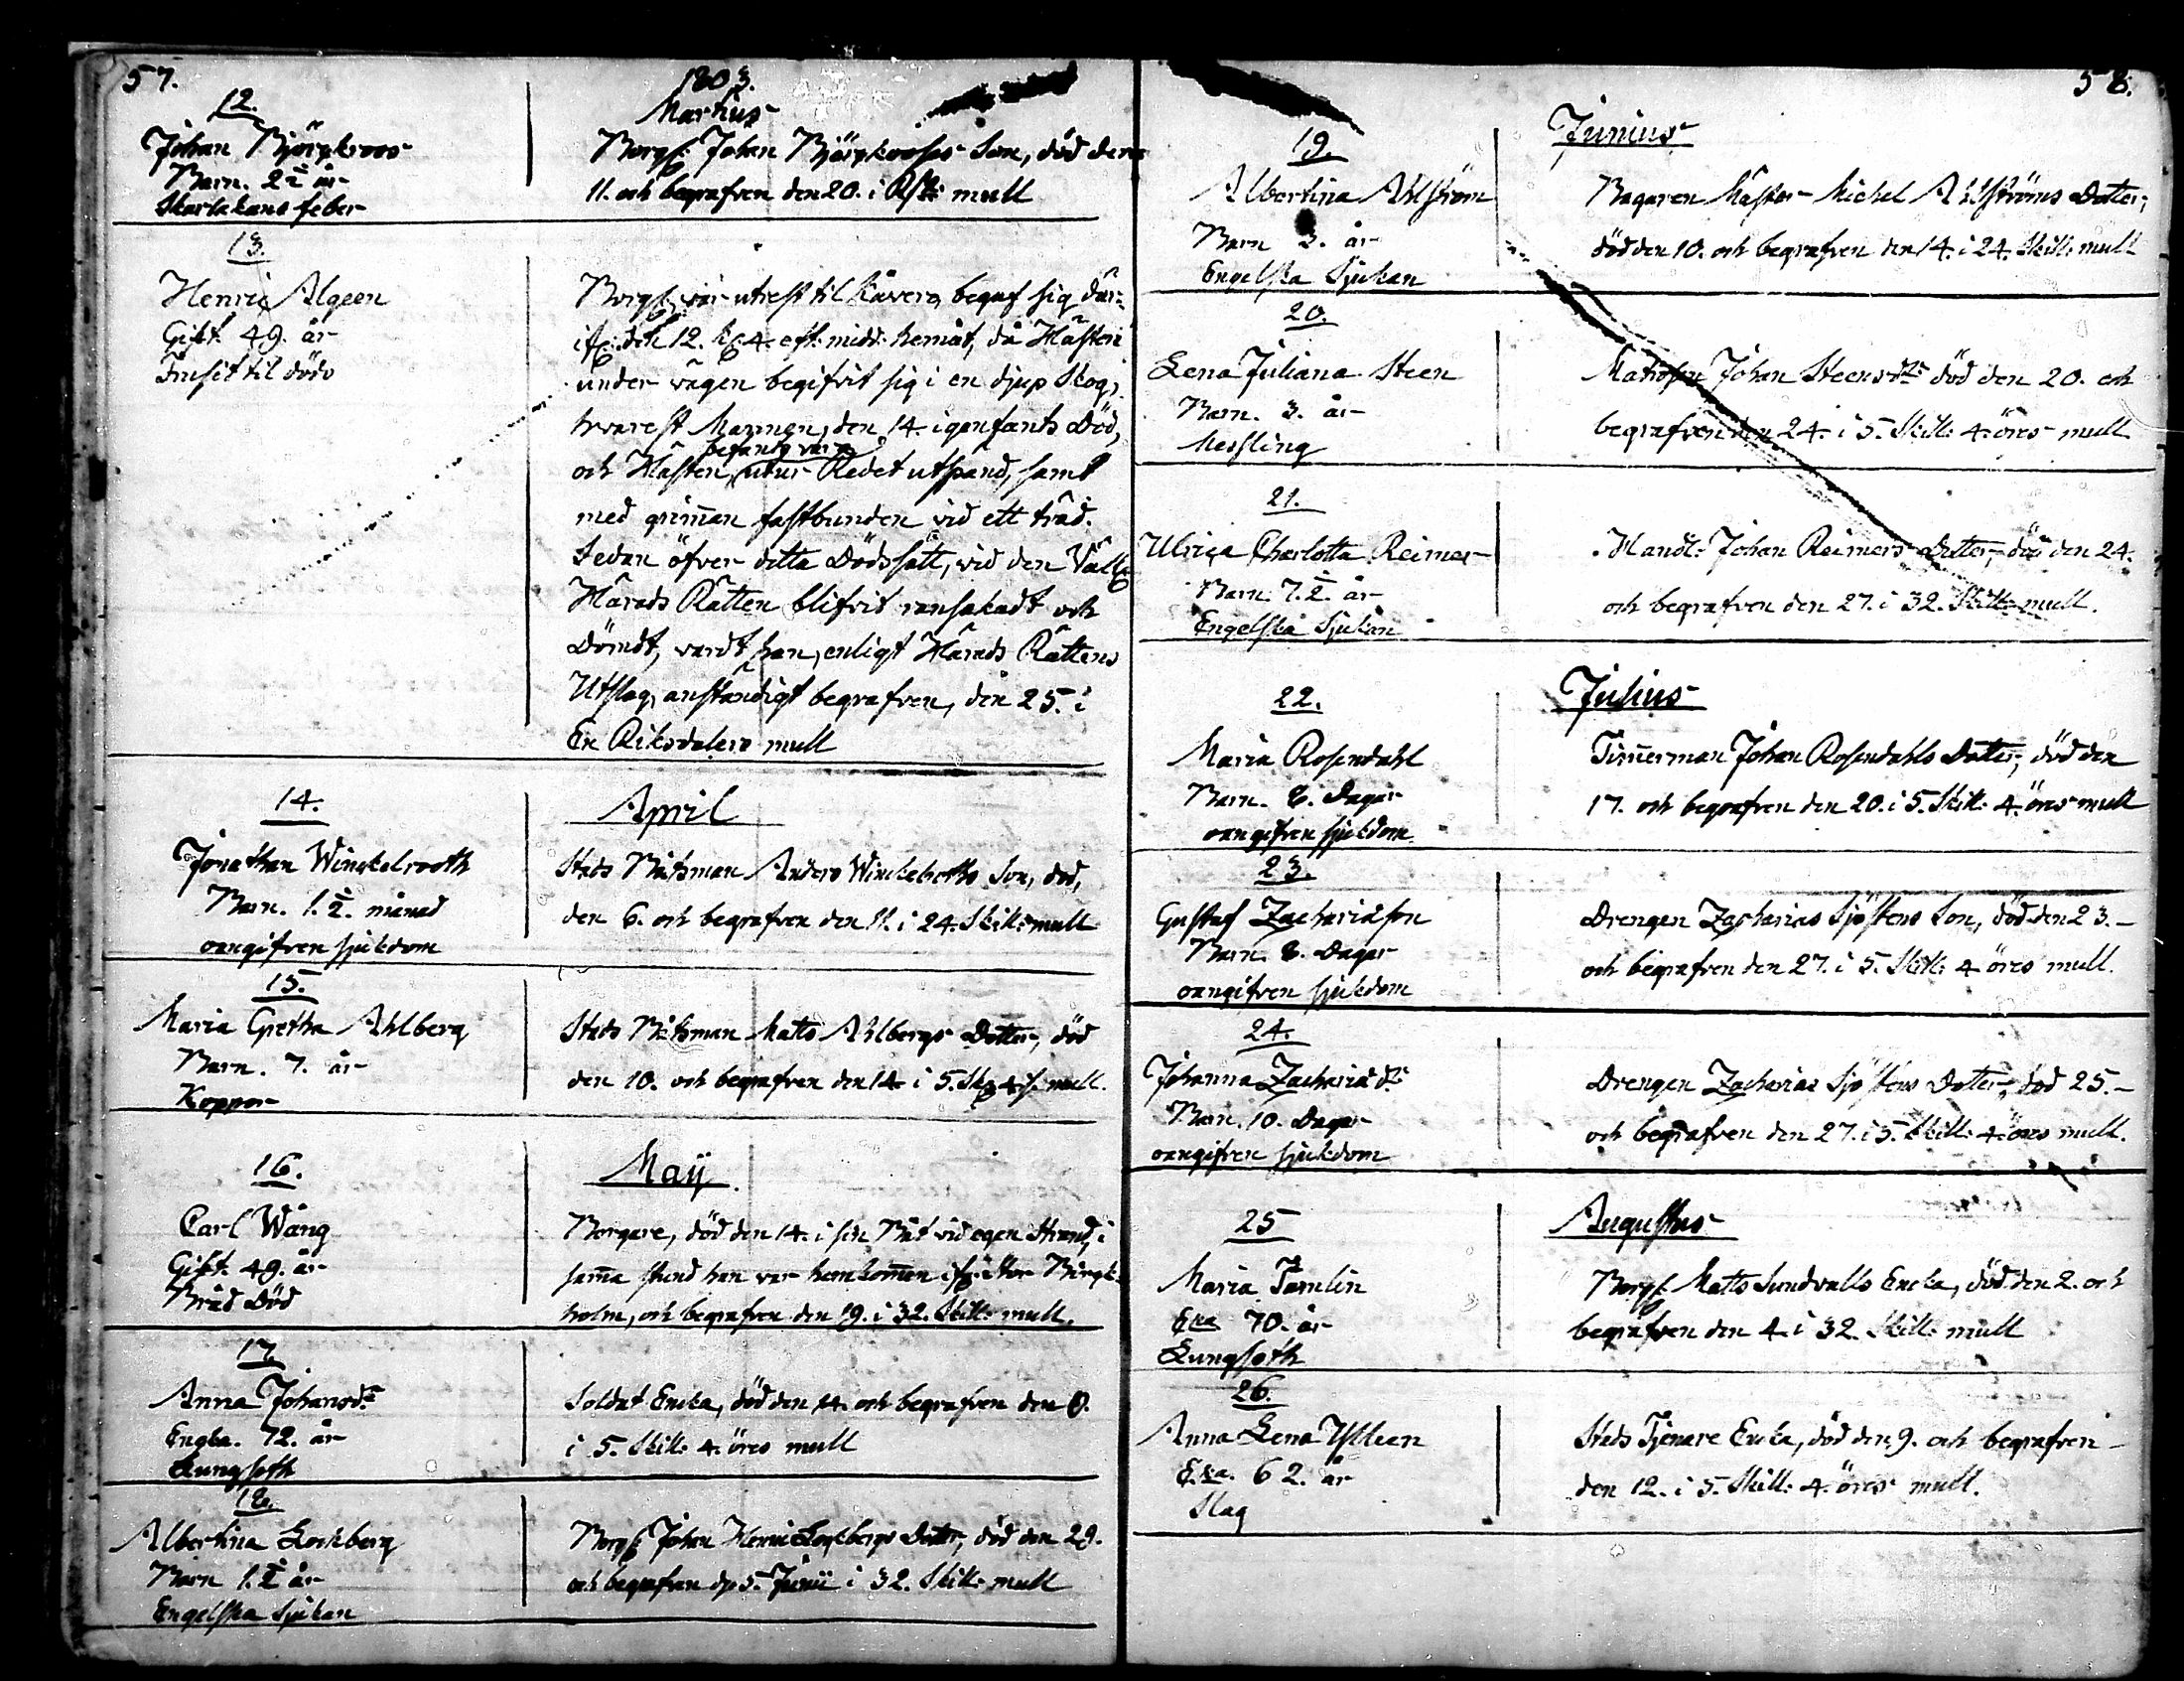 57.
1803.
Martius
12.
Johan Björkroos
Barn. 2 1/2 år
Skarlakans feber
Borg: Johan Björkroosses Son, död den
11. och begrafven den 20. i mull
13.
Henric Algeen
Gift. 49. år
Frusit til döds
Borg: var utrest til begaf sig där-
ifr: den 12. kl: 4. eft: midd: hemåt, då Hästen
under vägen begifvit sig i en djup Skog,
hvarest Mannen, den 14. igenfants Död,
befants vara
och Hästen, utur Redet utspänd, samt
med grimman fastbunden vid ett träd.
Sedan öfver detta Dödssätt, vid den
Härads Rätten blifvit ransakadt och
Dömdt, vardt han, enligt Härads Rättens
Utslag, anständigt begrafven, den 25. i
En Riksdalers mull
April
14.
Jonathan Winckelrooth
Barn. 1. 1/2. månad
oangifven sjukdom
Stads Båtsman Anders Son, död,
den 6. och begrafven den 11. i 24. Skill: mull
15.
Maria Gretha Ahlberg
Barn. 7. år
Koppor
Stads Båtsman Matts Ahlbergs Dotter, död
den 10. och begrafven den 14. i 5. Sk: 4 mull.
May
16.
Carl Wång
Gift. 49. år
Bråd Död
Borgare, död den 14. i sin Båt vid egen Strand, i
samma stund han var hemkommen ifrån Stor Bergk-
holm, och begrafven den 19. i 32. Skill: mull.
17.
Anna Johansdr
Enka. 72. år
Lungsoth
Soldat Encka, död den 14. och begrafven den
i 5. Skill: 4. öres mull
18.
Albertina Lockberg
Barn 1. 1/2 år
Engelska Sjukan
Borg: Johan Henric Lockbergs Dotter, död den 29.
och begrafven d. 5. Junii i 32. Skill: mull
58.
Junius
19.
Albertina Ahlström
Barn 3. år
Engelska Sjukan
Bagaren Mäster Michel Ahlströms Dotter,
död den 10. och begrafven den 14. i 24. Skill: mull
20.
Lena Juliana Steen
Barn. 3. år
Messling
Matrosen Johan Steens dr död den 20. och
begrafven den 24. i 5. Skill: 4. öres mull.
21.
Ulrica Charlotta Reimer
Barn. 7. 1/2. år
Engelska Sjukan
Handl: Johan Reimers Dotter, död den 24.
och begrafven den 27. i 32. Skill: mull.
Julius
22.
Maria Rosendahl
Barn. 8. Dagar
oangifven sjukdom.
Timmerman Johan Rosendahls Dotter, död den
17. och begrafven den 20. i 5. Skill: 4. öres mull
23.
Gustaf Zachariasson
Barn. 8. Dagar
oangifven sjukdom
Drengen Zacharias Sjöstens Son, död den 23.
och begrafven den 27. i 5. Skill: 4 öres mull.
24.
Johanna Zachariædr
Barn. 10. Dagar
oangifven sjukdom
Drengen Zacharias Sjöstens Dotter, död 25.
och begrafven den 27. i 5. Skill: 4. öres mull.
Augustus
25
Maria Tamlin
Eka 70. år
Lungsoth
Borg: Matts Sundvalls Encka, död den 2. och
begrafven den 4. i 32. Skill: mull
26.
Anna Lena
Eka. 62. år
Slag
Stads Tjenare Encka, död den 9. och begrafven
den 12. i 5. Skill: 4. öres mull.